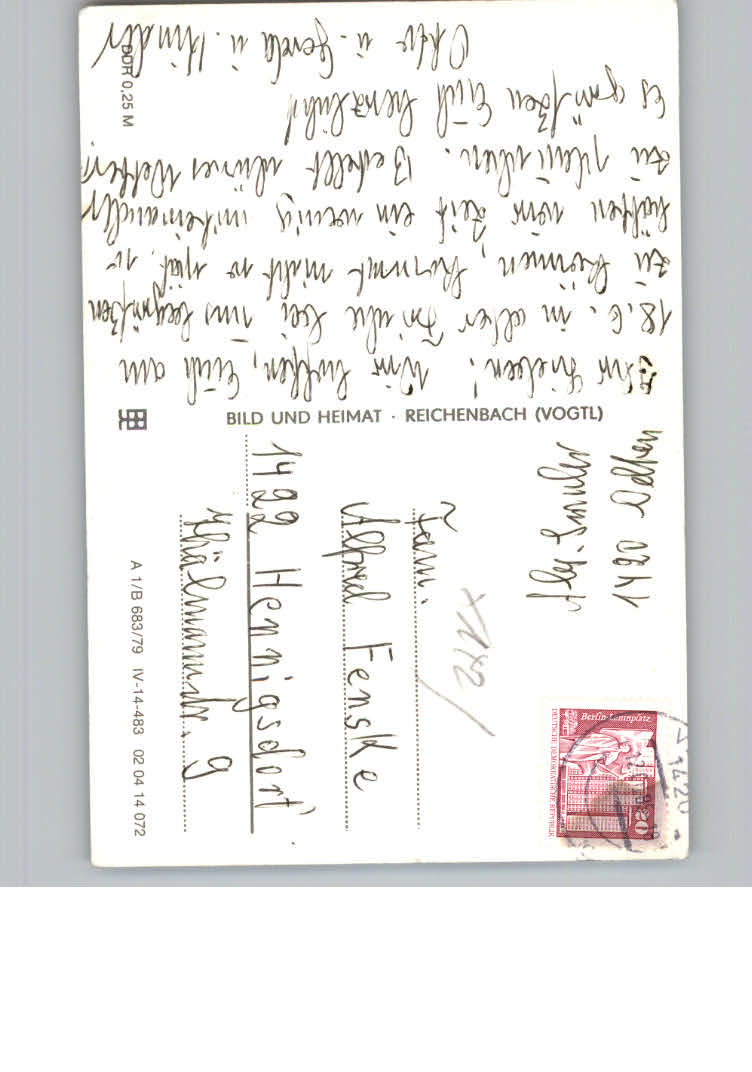 Ihr Lieben! Wir hoffen, Euch am
18.6. in aller Frische bei uns begrüßen
zu können, kommt nicht so spät, so
hätten wir Zeit ein wenig miteinander
zu plauschen. Bestellt schönes Wetter.
Es grüßen Euch herzlichst
Oktav u. Gerda u. Kinder
DDR 0,25 M
BILD UND HEIMAT · REICHENBACH (VOGTL)
A 1/B 683/79 IV-14-483 02 04 14 072
Fam.
Alfred Fenske
1422 Hennigsdorf
Thälmannstr. 9
Berlin-Leninplatz
DEUTSCHE DEMOKRATISCHE REPUBLIK
20
1420